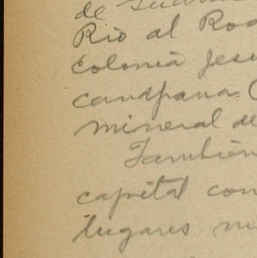 de
Rio al
colonia
campana (
mineral de
También
capital con
lugares